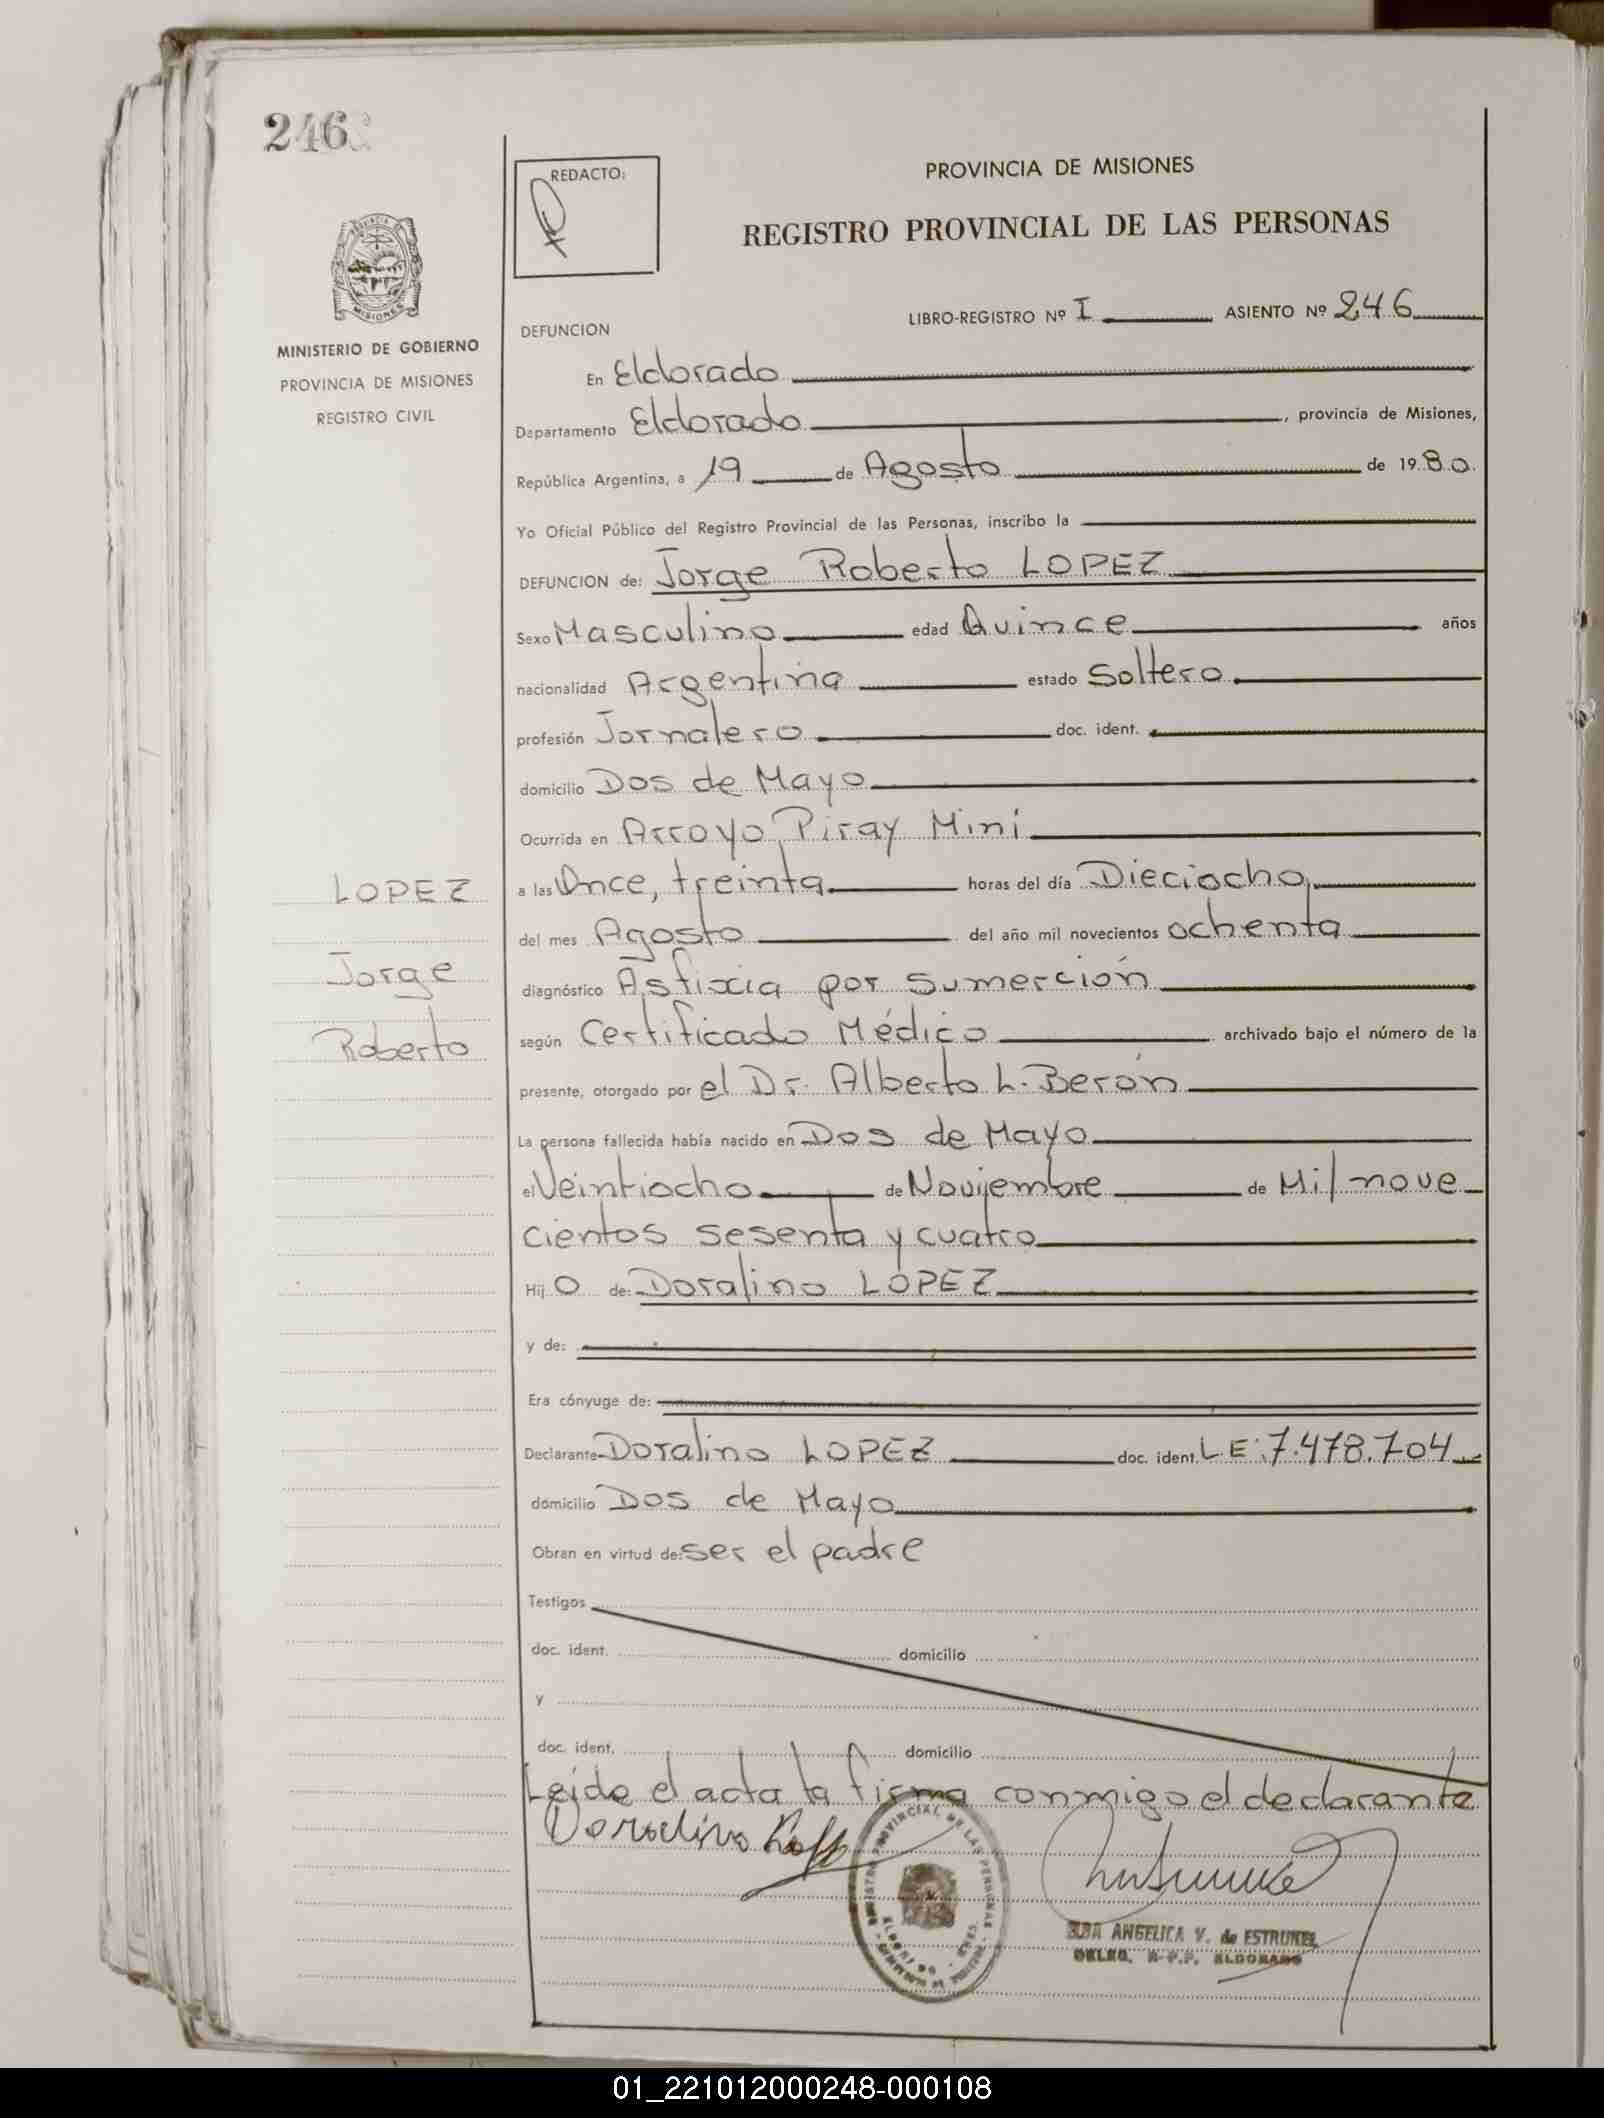 246
REDACTO:
PROVINCIA DE MISIONES
REGISTRO PROVINCIAL DE LAS PERSONAS
MISIONES
MINISTERIO DE GOBIERNO
PROVINCIA DE MISIONES
REGISTRO CIVIL
LIBRO-REGISTRO Nº I ASIENTO Nº 246
DEFUNCION
En Eldorado
Departamento Eldorado, provincia de Misiones,
República Argentina, a 19 de Agosto de 1980
Yo Oficial Público del Registro Provincial de las Personas, inscribo la
DEFUNCION de: Jorge Roberto LOPEZ
Sexo Masculino edad Quince años
nacionalidad Argentina estado Soltero
profesión Jornalero doc. ident.
domicilio Dos de Mayo
Ocurrida en Arroyo Piray Miní
a las Once, treinta horas del día Dieciocho
del mes Agosto del año mil novecientos ochenta
diagnóstico Asfixia por sumerción
según Certificado Médico archivado bajo el número de la
presente, otorgado por el Dr. Alberto L. Berón
La persona fallecida había nacido en Dos de Mayo
el Veintiocho de Noviembre de Mil nove
cientos sesenta y cuatro
Hij o de: Doralino LOPEZ
y de:
Era cónyuge de:
Declarante Doralino LOPEZ doc. ident. L.E. 7.478.704
domicilio Dos de Mayo
Obran en virtud de: ser el padre
Testigos
doc. ident. domicilio
y
doc. ident. domicilio
Leída el acta la firma conmigo el declarante
LOPEZ
Jorge
Roberto
Doralino
REGISTRO PROVINCIAL DE LAS PERSONAS
ELDORADO
ANGELICA V. de ESTRUKEL
DELEG. R.P.P. ELDORADO
01_221012000248-000108